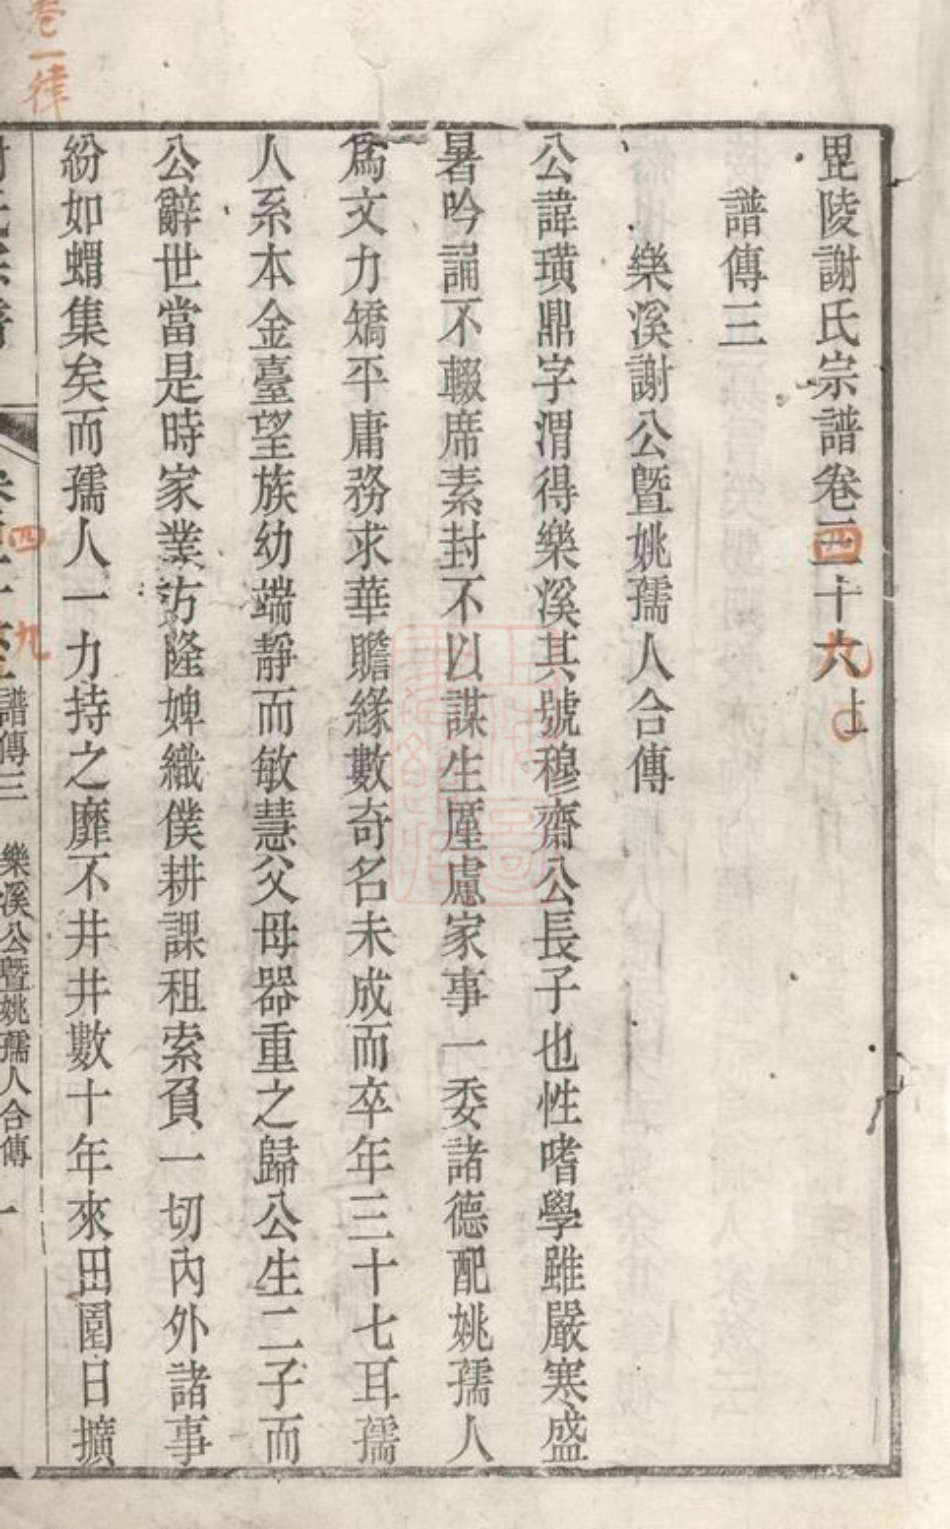 毘陵謝氏宗譜卷三十六上
四
九
譜傳三
樂溪謝公暨姚孺人合傳
公諱璜鼎字渭得樂溪其號穆齋公長子也性嗜學雖嚴寒盛
暑吟誦不輟席素封不以謀生厪慮家事一委諸德配姚孺人
為文力矯平庸務求華贍緣數奇名未成而卒年三十七耳孺
人系本金臺望族幼端靜而敏慧父母器重之歸公生二子而
公辭世當是時家業方隆婢織僕耕課租索負一切內外諸事
紛如蝟集矣而孺人一力持之靡不井井數十年來田園日擴
卷一律
四
九
譜傳三
樂溪公暨姚孺人合傳
一